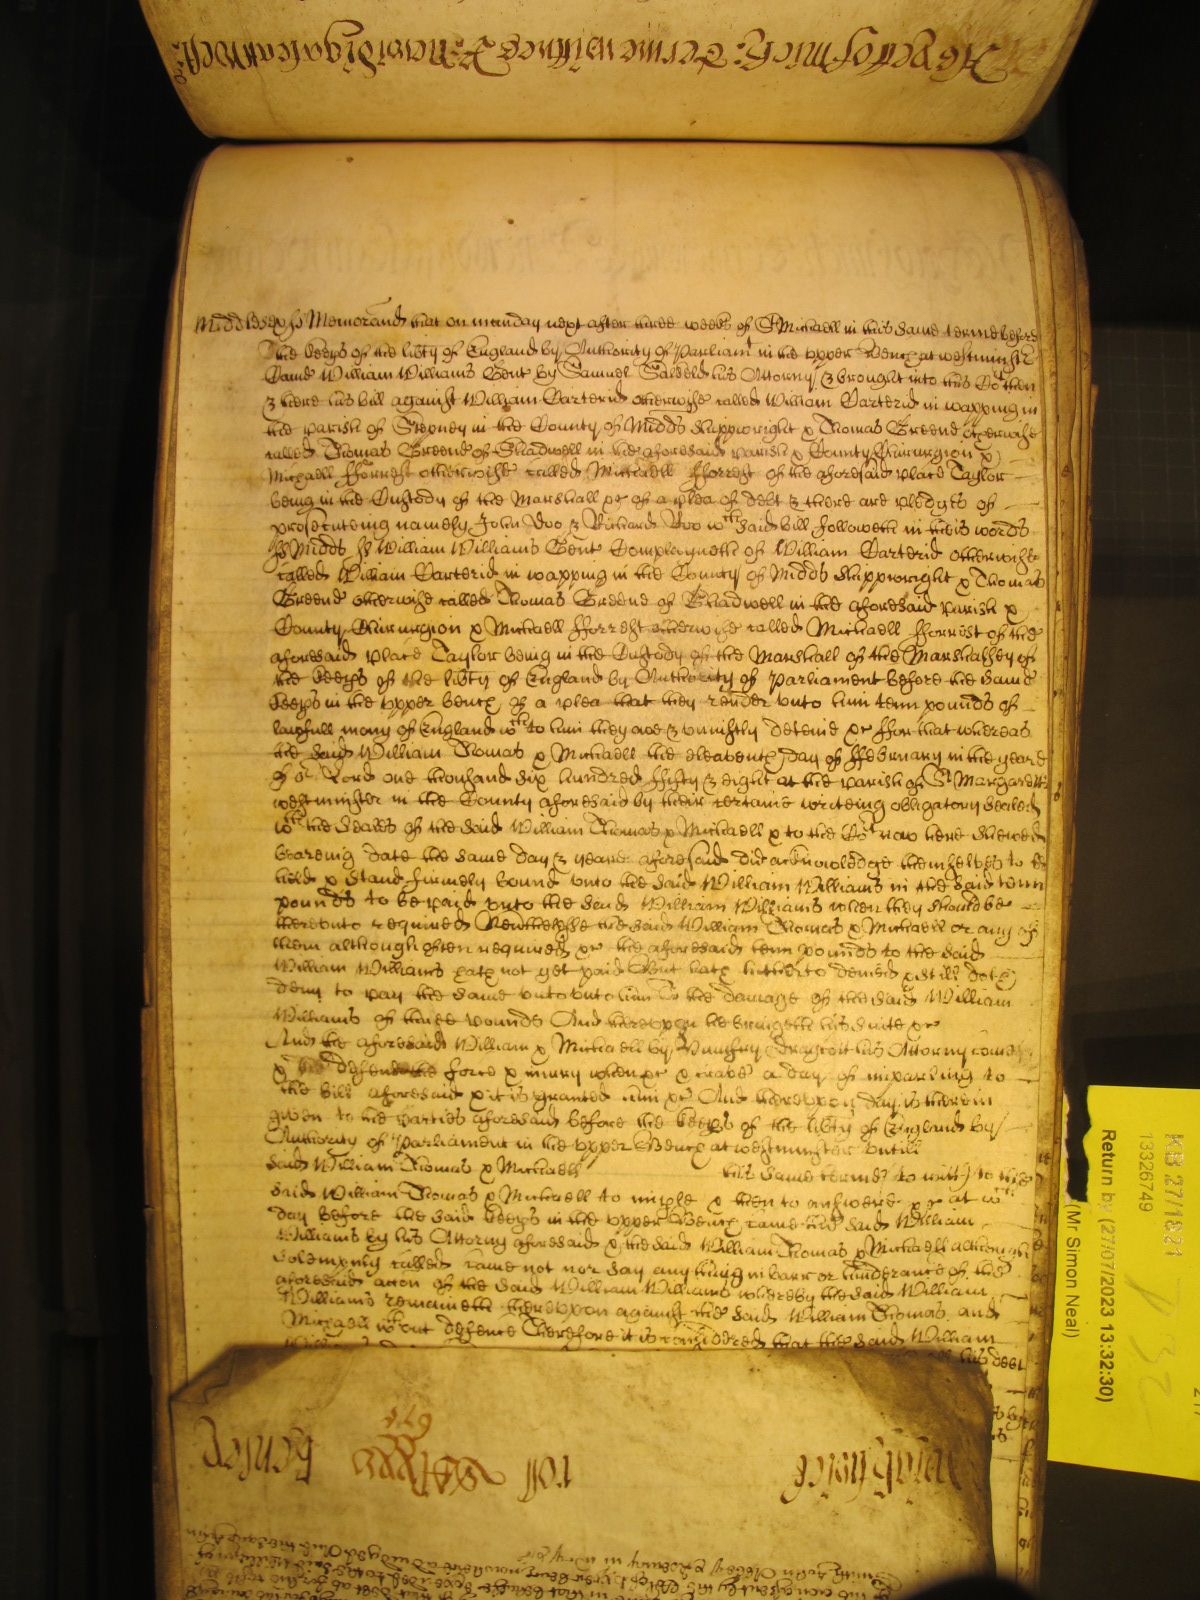 As yet of Mich: Terme witnes R: Newdigate
Middlesex ss Memorand that on munday next after three weeks of St Michaell in this same terme before
the keeps of the libty of England by Authority of Parliamt in the upper Bench at westminster
Came William Williams Gent by Samuel his Attorny & brought into this Co then
& there his bill against William Carterid otherwise called William Carterid in wapping in
the parish of Stepney in the County of Midds shippwright & Thomas Greene otherwise
called Thomas Greene of Shadwell in the aforesaid parish & County Chirurgion &
Michaell fforrest otherwise called Michaell fforrest of the aforesaid place Taylor
being in the Custody of the Marshall &c of a plea of debt & there are pledges of
prosecuteing namely John Doo & Richard Roo wch said bill followeth in theis words
ss Midds ss William Williams Gent Complayneth of William Carterid otherwise
called William Carterid in wapping in the County of Midds shippwright & Thomas
Greene otherwise called Thomas Greene of Shadwell in the aforesaid parish &
County Chirurgion & Michaell fforrest otherwise called Michaell fforrest of the
aforesaid place Taylor being in the Custody of the Marshall of the Marshalsey of
the keeps of the libty of England by Authority of Parliament before the same
keeps in the upper bench of a plea that they render unto him tenn pounds of
lawfull mony of England wch to him they owe & uniustly deteine &c ffor that whereas
the said William Thomas & Michaell the eleaventh day of ffebruary in the yeare
of or Lord one thousand six hundred ffifty & eight at the parish of St Margaretts
westminster in the County aforesaid by their certaine writeing obligatory sealed
wth the seales of the said William Thomas & Michaell & to the Cort now here shewed
beareing date the same day & yeare aforesaid did acknowledge themselves to be
held & stand firmely bound unto the said William Williams in the said tenn
pounds to be paid unto the said William Williams when they should be
thereunto required Neverthelesse the said William Thomas & Michaell or any of
them although often required &c the aforesaid tenn pounds to the said
William Williams hath not yet paid But hath hitherto denied & still doth
deny to pay the same unto unto him to the damage of the said William
Williams of three pounds And thereupon he bringeth his suite &c
And the aforesaid William & Michaell by Humfry Draycott his Attorny come
& defend the force & iniury when &c & crave a day of imparling to
the bill aforesaid & it is granted him &c And thereupon day is therein
given to the parties aforesaid before the keeps of the libty of England by
Authority of Parliament in the upper Bench at westminster untill
said William Thomas & Michaell this same terme to witt to the
said William Thomas & Michaell to imple & then to answere &c at wch
day before the said keeps in the upper Bench came the said William
Williams by his Attorny aforesaid & the said William Thomas & Michaell although
solempnly called came not nor say any thing in barr or hinderance of the
aforesaid accon of the said William Williams whereby the said William
Williams remaineth thereupon against the said William Thomas and
Michaell wthout defence Therefore it is considered that the said William
his debt
679
roll
KB 27/1821
13326749
Return by (27/07/2023 13:32:30)
(Mr Simon Neal)